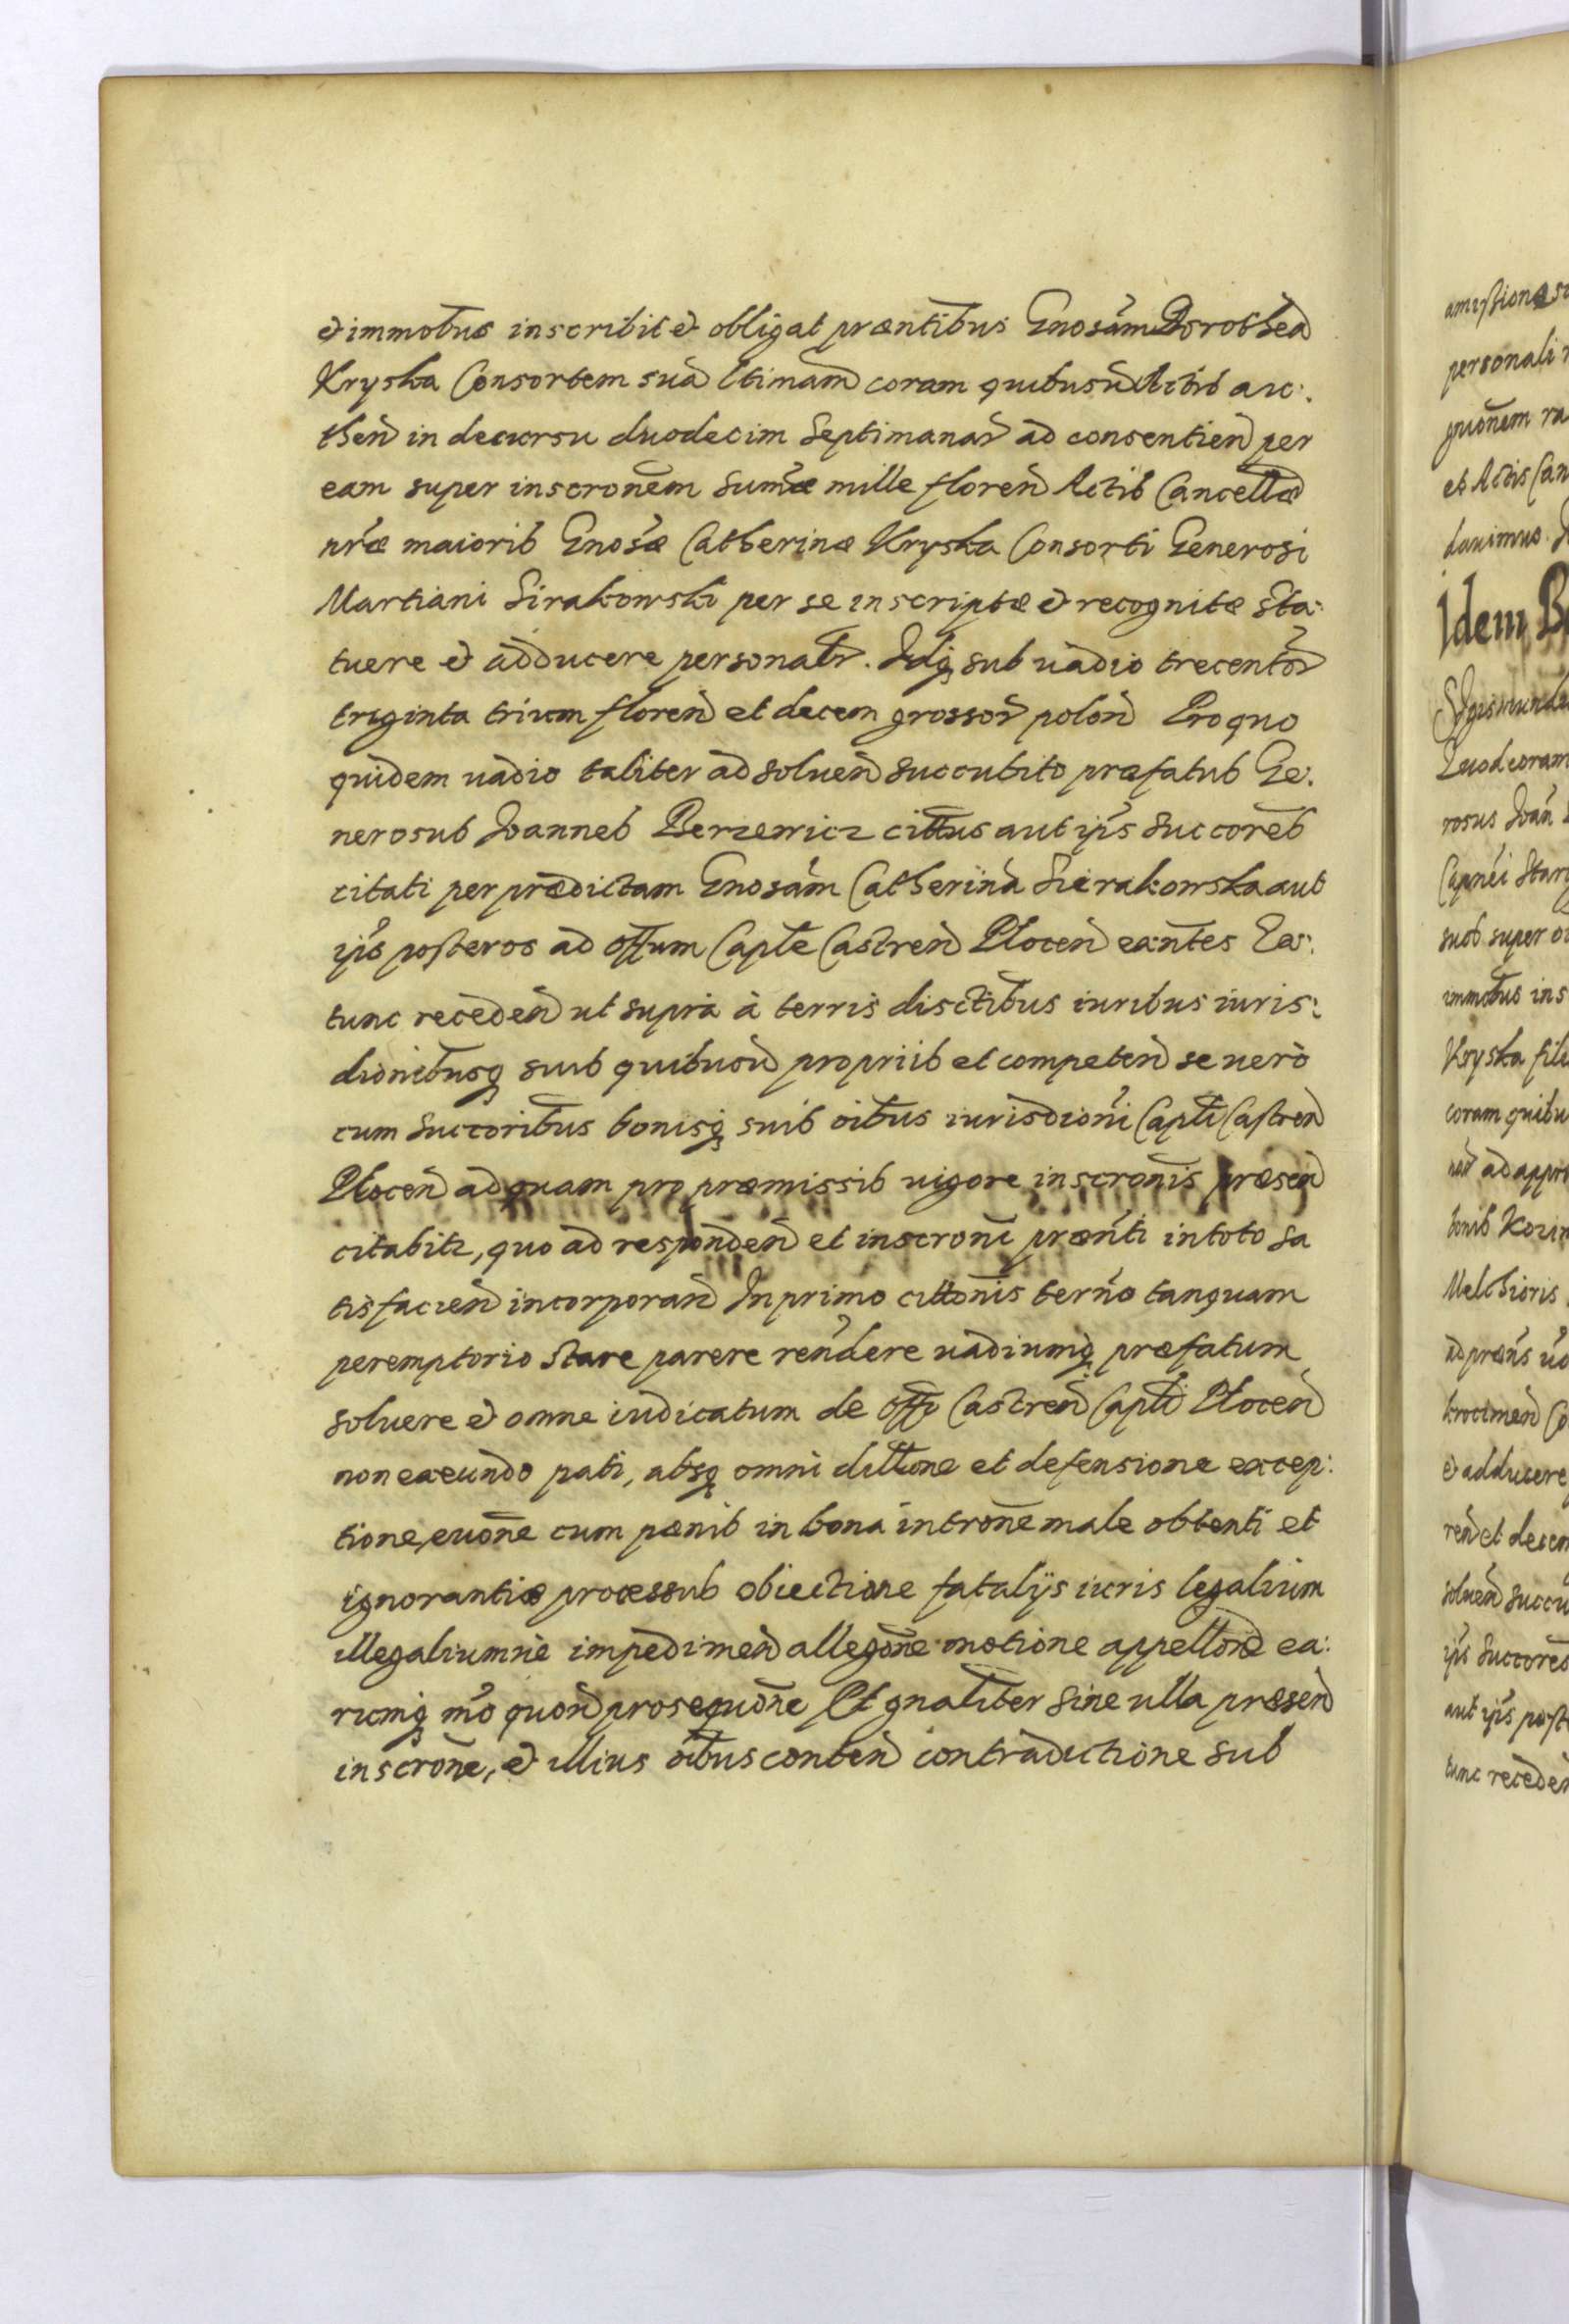 & immobus inscribit & obligat præntibus Gnosam Dorothea
Kryska Consortem suā Ltimam coram quibusuis Actis au:
then in decursu duodecim Septimanar ad consentien per
eam super inscronem Summæ mille floren Actis Cancellæ
nræ maioris Gnosæ Catherinæ Kryska Consorti Generosi
Martiani Sirakowski per se inscriptæ & recognitæ sta:
tuere & adducere personaltr. Idq; sub uadio trecentor
triginta trium floren et decem grossor polon Pro quo
quidem uadio taliter ad soluen succubito præfatus Ge:
nerosus Joannes Berzewicz cittus aut ips Succores
citati per prædictam Gnosam Catherina Sierakowska aut
ips posteros ad offum Capte Castren Plocen exantes Ex:
tunc receden ut supra à terris disctibus iuribus iuris:
dionibusq; suis quibusuis propriis et competen se uerò
cum Succoribus bonisq; suis oibus iurisdioni Capti Castren
Plocen ad quam pro præmissis uigore inscronis præsen
citabitr, quo ad responden et inscroni prænti in toto sa
tisfacien incorporan In primo cittonis termo tanquam
peremptorio stare parere rendere uadiumq; præfatum
soluere & omne iudicatum de offo Castren Capti Plocen
non exeundo pati, absq; omni dittone et defensione excep:
tione, euone cum pænis in bona introne male obtenti et
ignorantiæ processus obiectione fatalijs iuris legalium
illegaliumue impedimen allegone motione appellone ea:
rumq; mo quouis prosequone Et gnaliter sine ulla præsen
inscrone, & illius oibus conten contradictione sub
amissione
personali
gnionem ra
et Actis Can
dauimus
Idem
Sigismundus
Quod coram
rosus Joan
Capnei Star
suos super
immobus ins
Kryska fili
coram quibu
nar ad appro
bonis
Melchioris
ad præns
& adducere
ren et decem
soluen Succu
ips Succores
aut ips poste
tunc receden